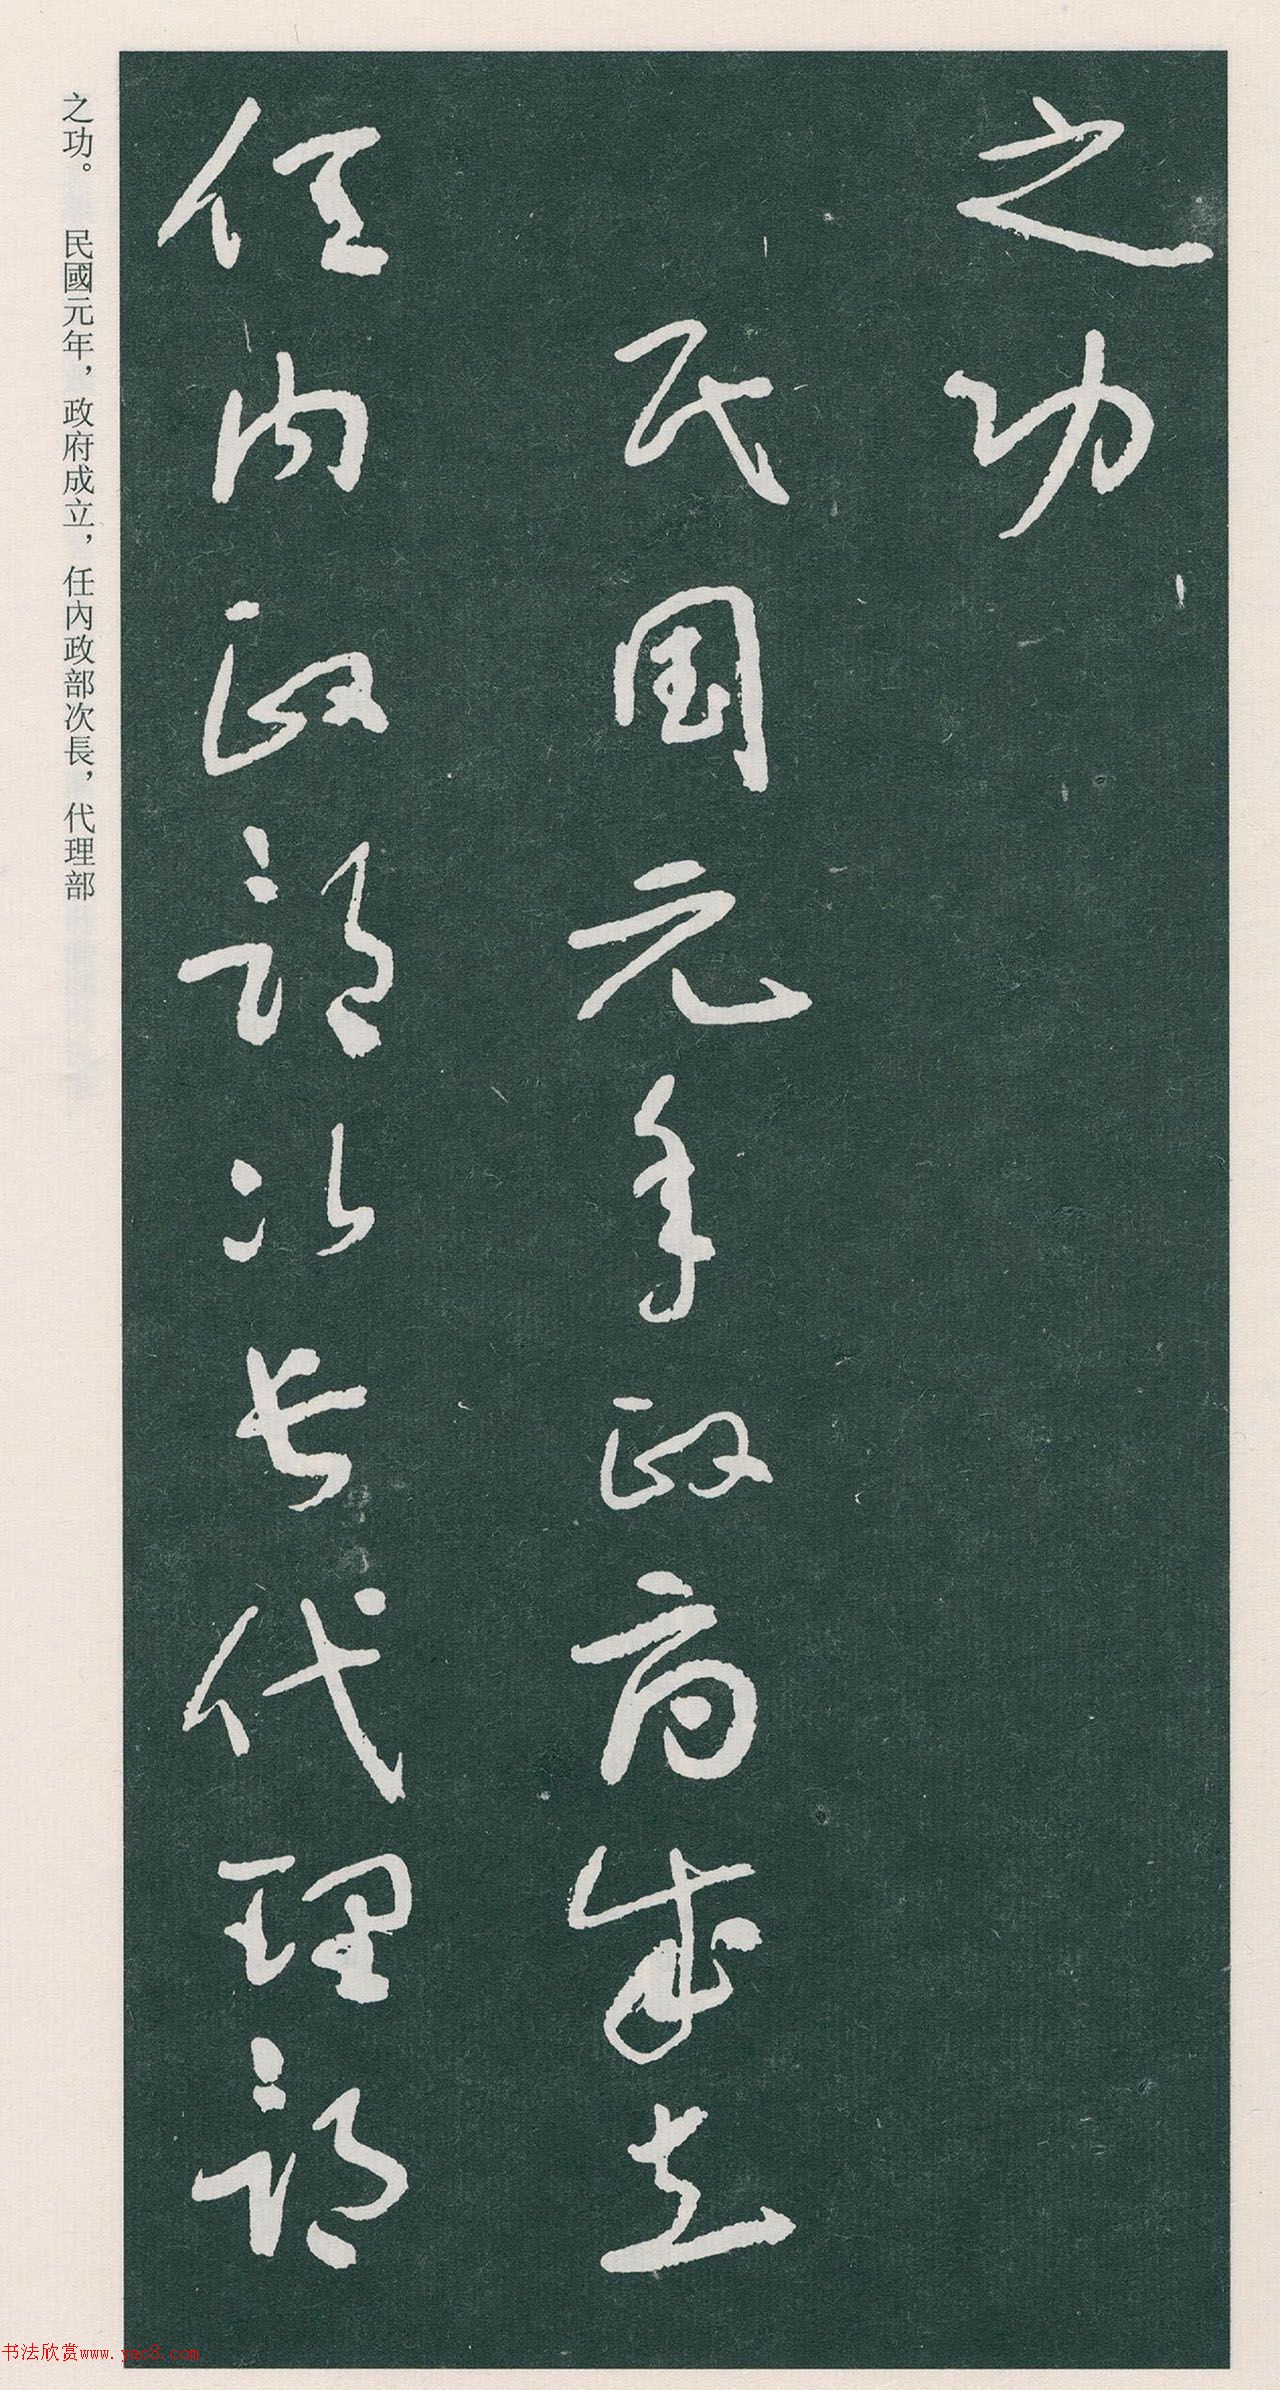 之功
民国元年政府成立
任内政部次长代理部
之功。 民國元年，政府成立，任內政部次長，代理部
书法欣赏www.yac8.com